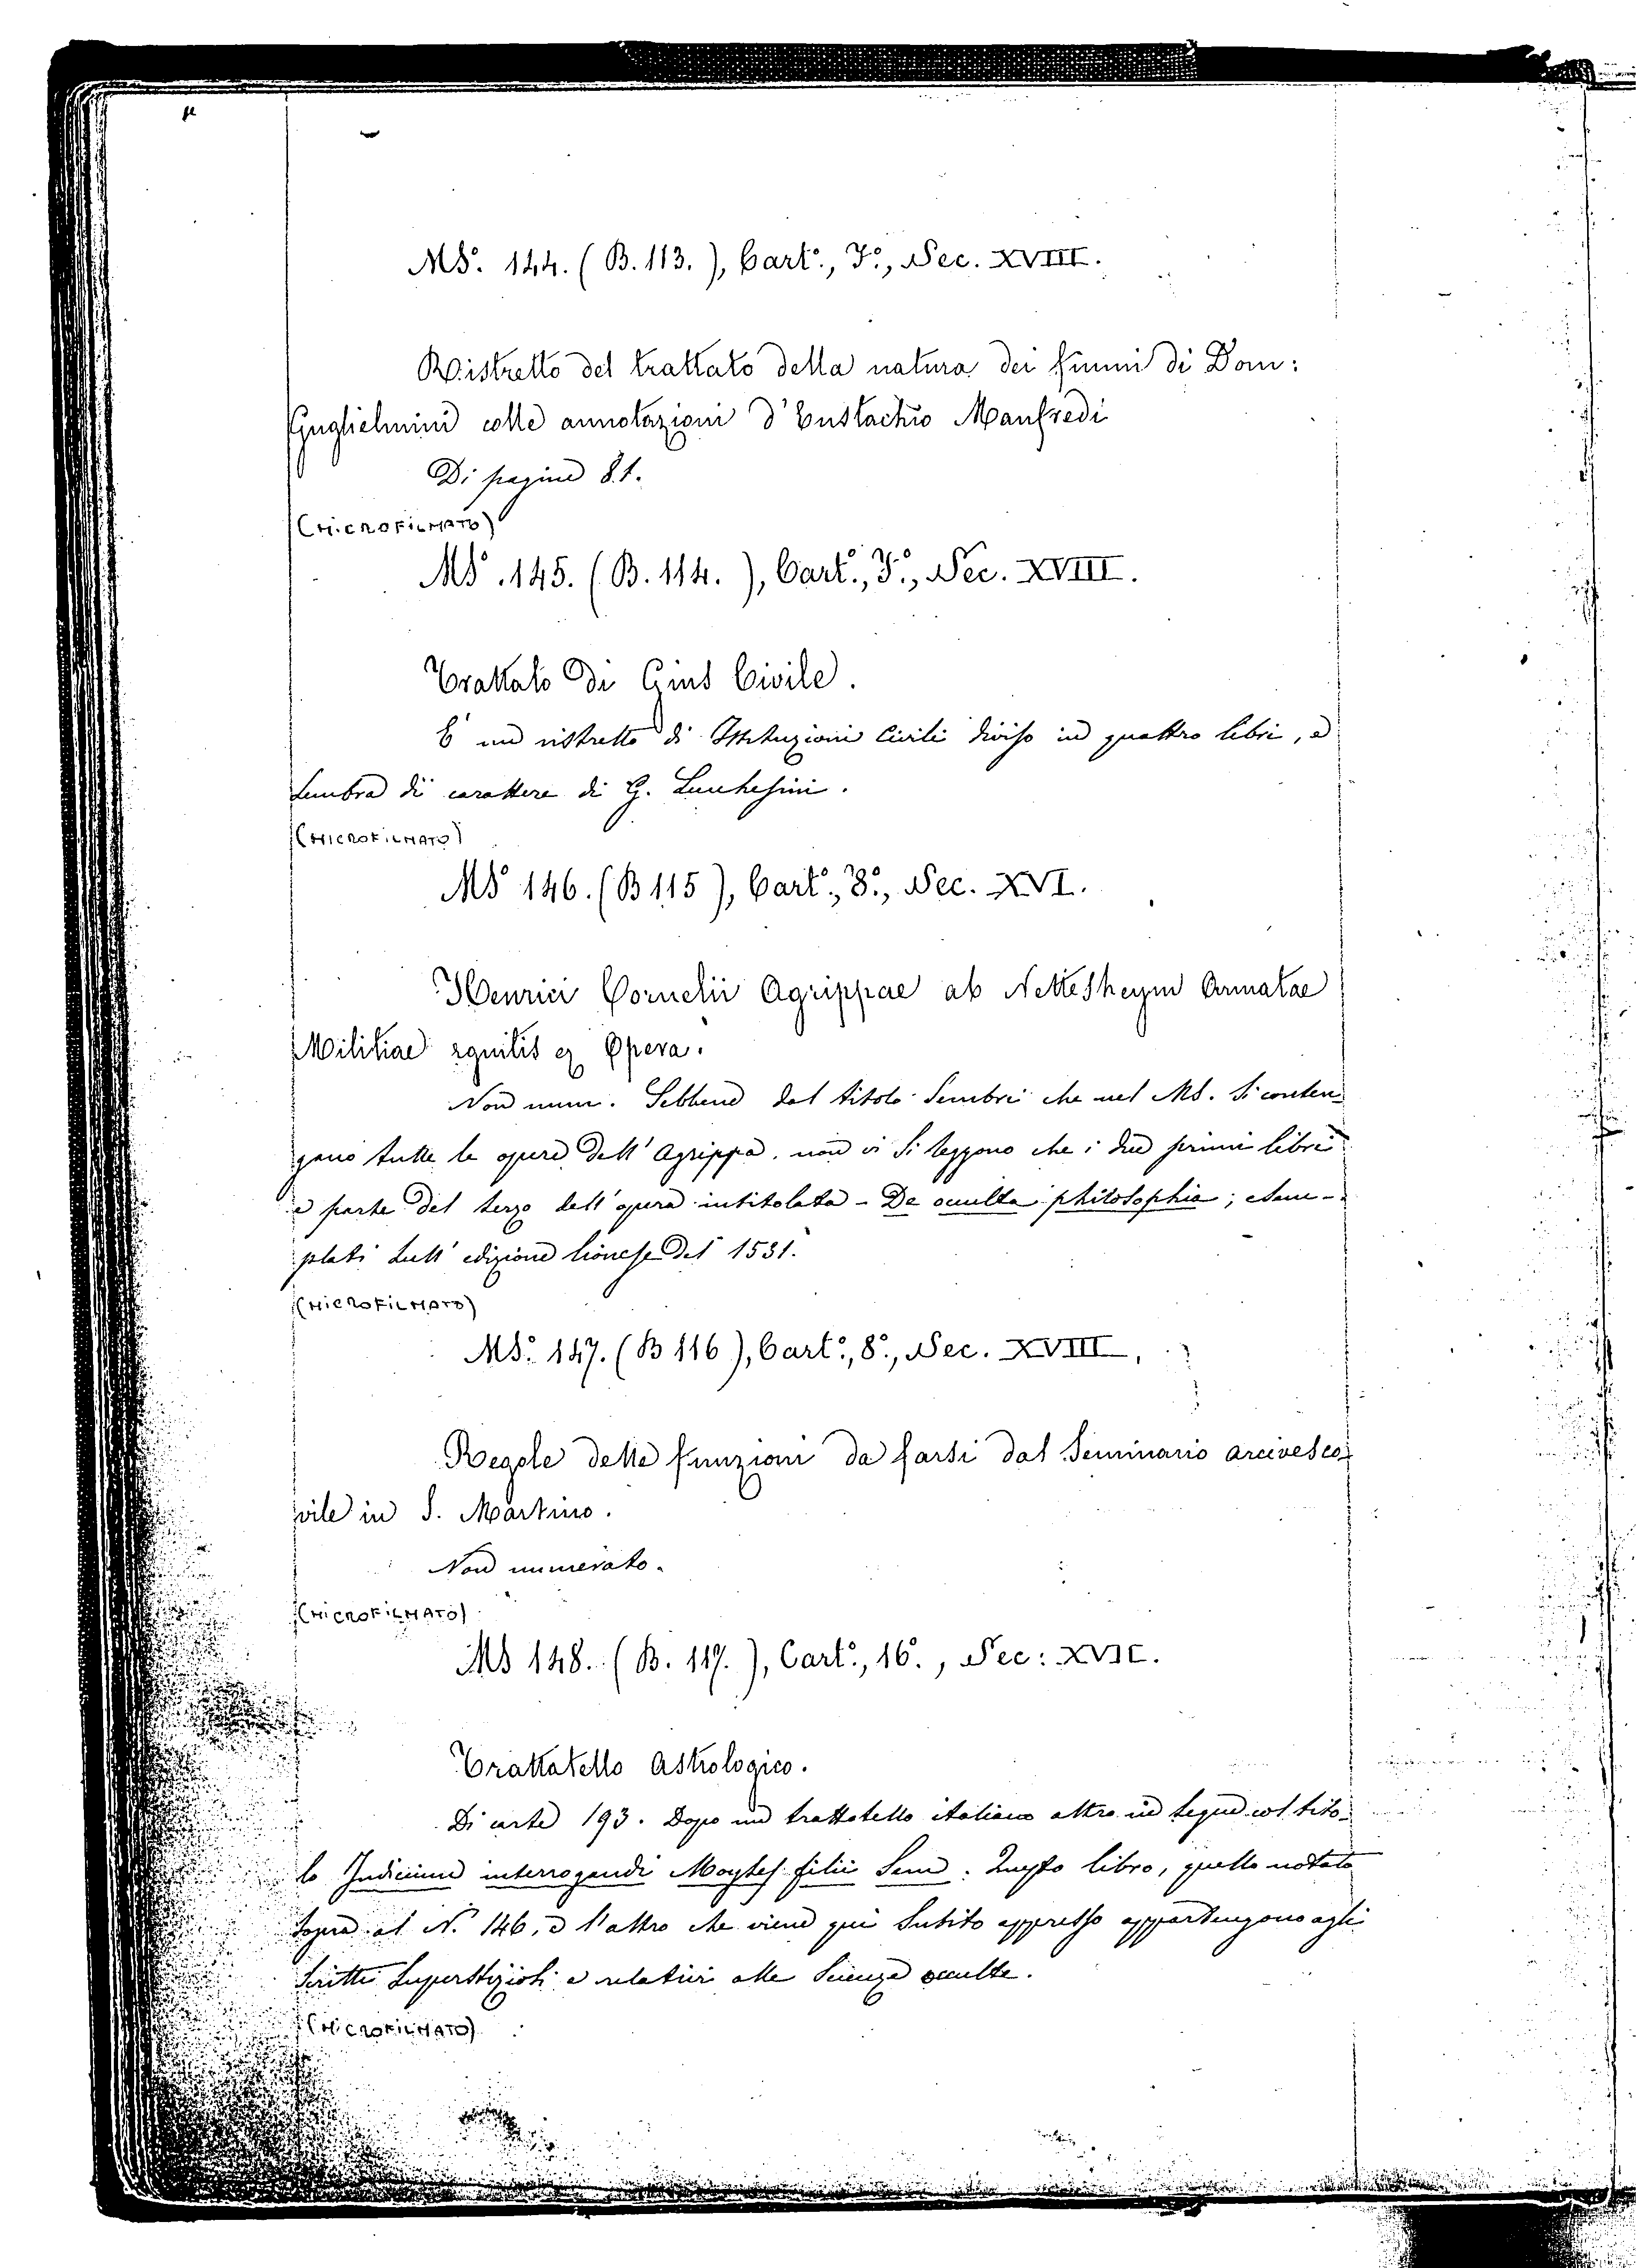 MS. 144. (B. 113.), Cart., F.º, Sec. XVIII.
Ristretto del trattato della natura dei fiumi di Dom:
Guglielmini colle annotazioni d'Eustachio Manfredi
Di pagine 81.
(MICROFILMATO)
MS. 145. (B. 114.), Cart., F.º, Sec. XVIII.
Trattato di Gius Civile.
È un ristretto di Istituzioni Civili diviso in quattro libri, e
sembra di carattere di G. Lucchesini.
(MICROFILMATO)
MS 146. (B 115), Cart., 8º, Sec. XVI.
Henrici Cornelii Agrippae ab Nettesheym Armatae
Militiae equitis Opera.
Non num. Sebbene dal titolo sembri che nel MS. si conten-
gano tutte le opere dell'Agrippa, non vi si leggono che i due primi libri
e parte del terzo dell'opera intitolata - De occulta philosophia; esem-
plati sull'edizione lionese del 1531.
(MICROFILMATO)
MS. 147. (B 116), Cart., 8º, Sec. XVIII.
Regole delle funzioni da farsi dal Seminario arcivesco-
vile in S. Martino.
Non numerato.
(MICROFILMATO)
MS 148. (B. 117.), Cart., 16º, Sec: XVII.
Trattatello astrologico.
Di carte 193. Dopo un trattatello italiano altro ne segue col tito-
lo Judicium interrogandi Moyses filii Senu. Questo libro, quello notato
sopra al N. 146, e l'altro che viene qui subito appresso appartengono agli
scritti superstiziosi e relativi alle Scienze occulte.
(MICROFILMATO)